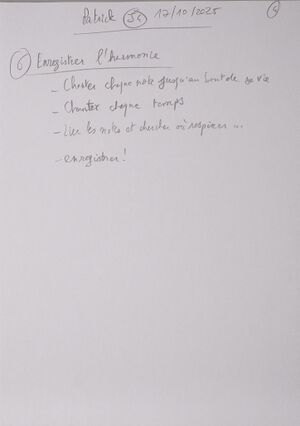 Patrick 17/10/2025
6 Enregistrer l'harmonie
- Chanter chaque note jusqu'au bout de sa vie
- Chanter chaque temps
- Lier les notes et chercher où respirer ...
- enregistrer !